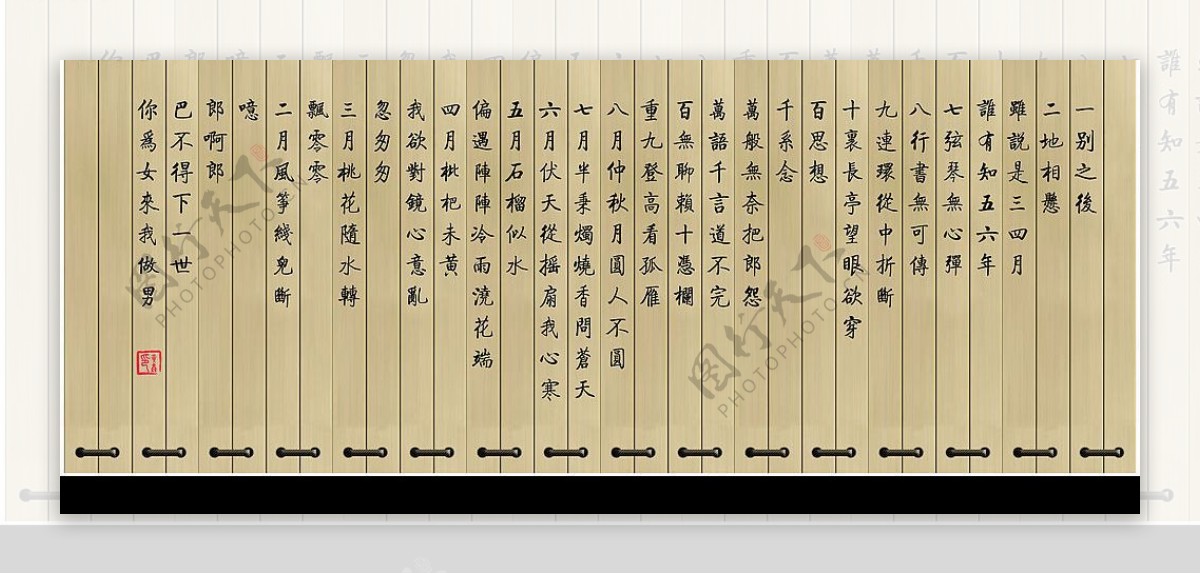 一别之後
二地相懸
雖説是三四月
誰有知五六年
七弦琴無心彈
八行書無可傳
九連環從中折斷
十裏長亭望眼欲穿
百思想
千系念
萬般無奈把郎怨
萬語千言道不完
百無聊賴十憑欄
重九登高看孤雁
八月仲秋月圓人不圓
七月半秉燭燒香問蒼天
六月伏天從摇扇我心寒
五月石榴似水
偏遇陣陣冷雨澆花端
四月枇杷未黄
我欲對鏡心意亂
忽匆匆
三月桃花隨水轉
飄零零
二月風筝綫兒斷
噫
郎啊郎
巴不得下一世
你爲女來我做男
誰有知五六年
图行天下
PHOTOPHOTO.CN
图行天下
PHOTOPHOTO.CN